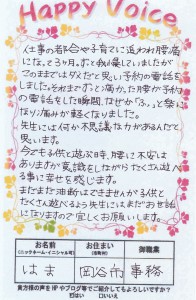 Happy Voice
仕事の都合や子育てに追われ腰痛
になって3ヶ月。ずっと我慢していましたが
このままではダメだと思い予約の電話を
しました。それまでずっと痛かった腰が予約
の電話をした瞬間、なぜか「ふっ」と楽に
なり痛みが軽くなりました。
先生には何か不思議な力があるんだと
思います。
今でも子供と遊ぶ時、腰に不安は
ありますが意識をしながらたくさん遊べ
る事に幸せを感じます。
まだまだ油断はできませんが子供と
たくさん遊べるよう先生よろしくおねがい
致しますので宜しくお願いします。
お名前
(ニックネーム・イニシャル可)
お住まい
(市町村)
御職業
はま
岡谷市
事務
貴方様の声をHPやブログ等でご紹介してもよろしいですか?
はい いいえ